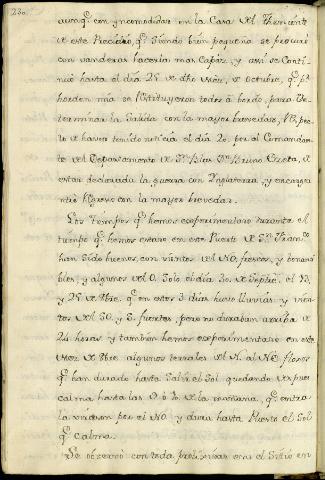 230
aunq.e con yncomodidad en la Casa del Theniente
de este Presidio, q.e siendo bien pequeña se procuró
con vanderas hacerla mas Capáz, y assi se Conti-
nuó hasta el dia 25 de dho Mes, de Octubre, q.e p.r
horden mia se restituyeron todos á bordo, para De-
terminar mi Salida con la mayor brevedad, respec-
to de haver tenido noticia el dia 20 por el Comandan-
te del Departamento de S.n Blas D.n Bruno Ezeta, de
estar declarada la guerra con Ynglaterra, y encarga
mi Regreso con la mayor brevedad.
Los tiempos q.e hemos experimentado durante el
tiempo q.e hemos estado en este Puerto de S.n Fran.co
han sido buenos, con vientos del NO. frescos, y bonan-
bles, y algunos del O. Solo el dia 30 de Septre. el 13,
y 25 de 8bre. q.e en estos 3 dias huvo lluvias, y vien-
tos del SO. y S. fuertes, pero no duraban arriba de
24 horas y tambien hemos experimentado en este
Mes de 8bre. algunos terrales del N. al NE. flojos
q.e han durado hasta Salir el Sol quedando despues
calma hasta las 9 ó 10 de la mañana, q.e entra
la virason por el NO. y dura hasta Puesto el Sol
q.e calma.
Se observó con toda prolijidad en el Sitio en